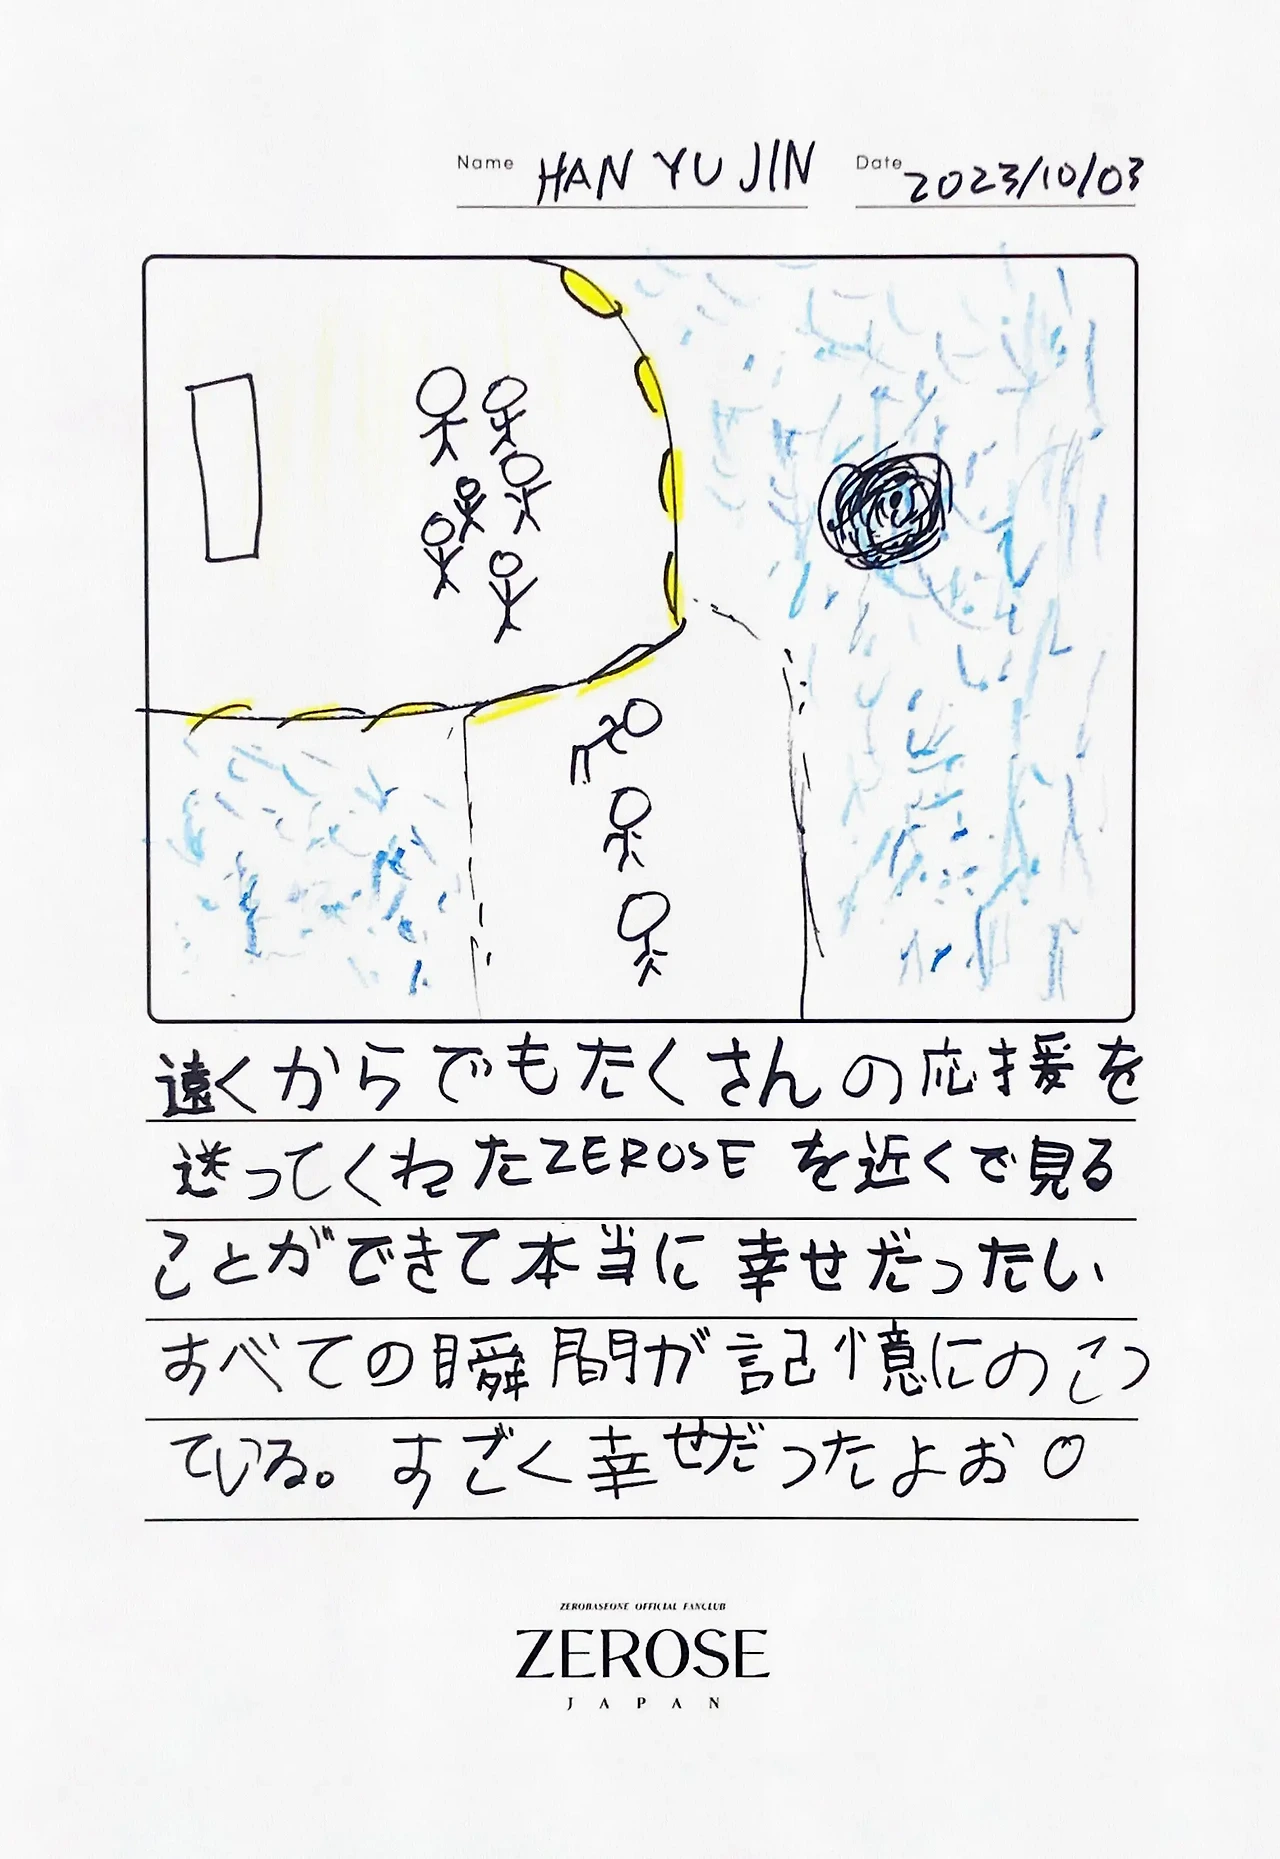 Name HAN YU JIN Date 2023/10/03
遠くからでもたくさんの応援を
送ってくれたZEROSEを近くで見る
ことができて本当に幸せだったし、
すべての瞬間が記憶にのこっ
ている。すごく幸せだったよお♡
ZEROBASEONE OFFICIAL FANCLUB
ZEROSE
JAPAN